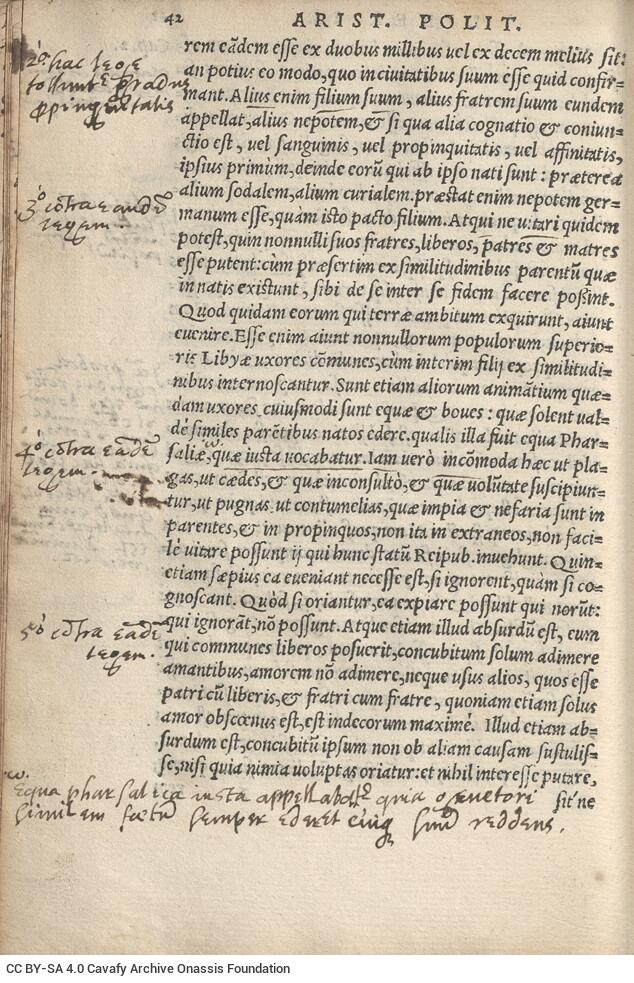 42 ARIST. POLIT.
rem eãdem esse ex duobus millibus uel ex decem melius sit:
an potius eo modo, quo in ciuitatibus suum esse quid confir=
mant. Alius enim filium suum, alius fratrem suum eundem
appellat, alius nepotem, & si qua alia cognatio & coniun=
ctio est, uel sanguinis, uel propinquitatis, uel affinitatis,
ipsius primùm, deinde eorũ qui ab ipso nati sunt: præterea
alium sodalem, alium curialem. præstat enim nepotem ger=
manum esse, quàm isto pacto filium. Atqui ne uitari quidem
potest, quin nonnulli suos fratres, liberos, patres & matres
esse putent: cùm præsertim ex similitudinibus parentũ quæ
in natis existunt, sibi de se inter se fidem facere possint.
Quod quidam eorum qui terræ ambitum exquirunt, aiunt
euenire. Esse enim aiunt nonnullorum populorum superio=
ris Libyæ uxores cõmunes, cùm interim filij ex similitudi=
nibus internoscantur. Sunt etiam aliorum animãtium quæ=
dam uxores, cuiusmodi sunt equæ & boues: quæ solent ual=
dè similes parẽtibus natos edere. qualis illa fuit equa Phar=
saliæ, quæ iusta uocabatur. Iam uerò incõmoda hæc ut pla=
gas, ut cædes, & quæ inconsultò, & quæ uolũtate suscipiun=
tur, ut pugnas, ut contumelias, quæ impia & nefaria sunt in
parentes, & in propinquos, non ita in extraneos, non faci=
lè uitare possunt ij qui hunc statũ Reipub. inuehunt. Quin=
etiam sæpius ea eueniant necesse est, si ignorent, quàm si co=
gnoscant. Quòd si oriantur, ea expiare possunt qui norũt:
qui ignorãt, nõ possunt. Atque etiam illud absurdũ est, eum
qui communes liberos posuerit, concubitum solum adimere
amantibus, amorem nõ adimere, neque usus alios, quos esse
patri cũ liberis, & fratri cum fratre, quoniam etiam solus
amor obscœnus est, est indecorum maximè. Illud etiam ab=
surdum est, concubitũ ipsum non ob aliam causam sustulis=
se, nisi quia nimia uoluptas oriatur: et nihil interesse putare,
sit ne
2º hac lege
tollunt gradus
ppinquitatis
3º cõtra eandẽ
legem.
4º cõtra eãdẽ
legem.
5º cõtra eãdẽ
legem.
Equa pharsalica iusta appellabatr quia genitori
similem fœtũ semper ederet eiusq suũ reddens.
CC BY-SA 4.0 Cavafy Archive Onassis Foundation